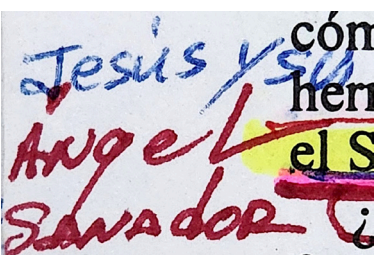 Jesús y su
ÁNgeL
SANADOR
cóm
herm
el S
¿